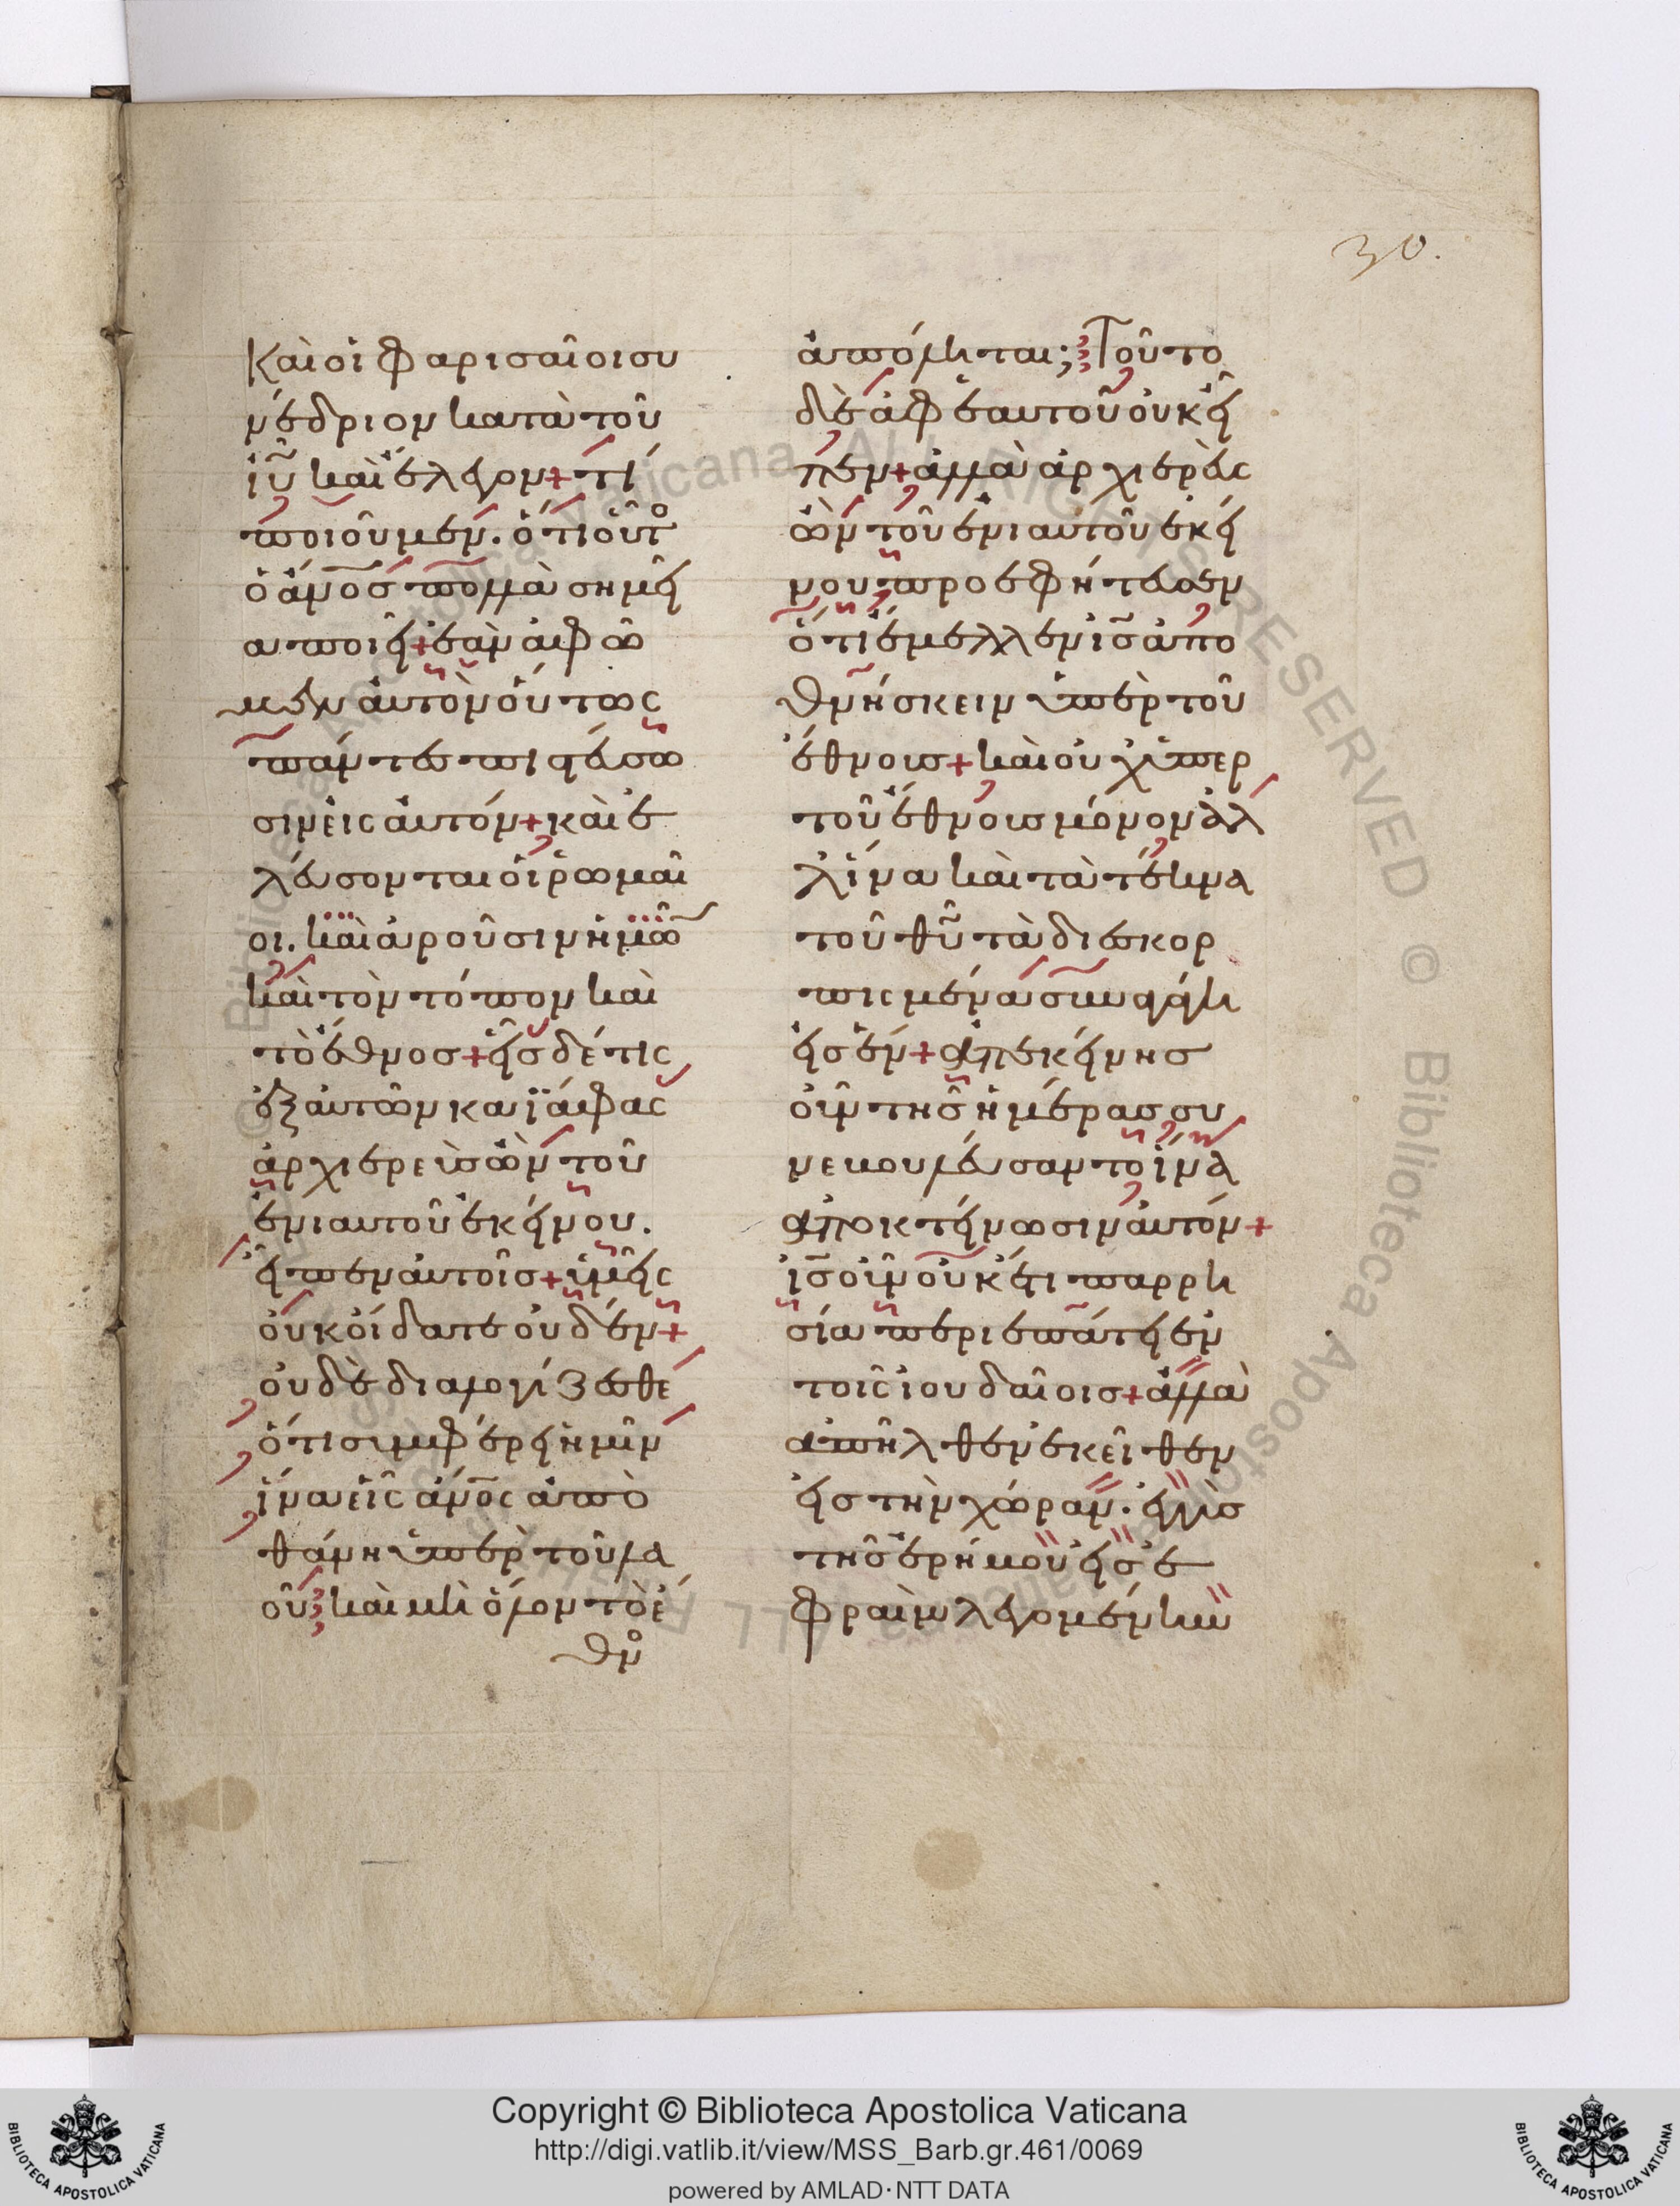 30.
Καὶ οἱ φαρισαῖοι συ
νέδριον κατὰ τοῦ
ἰῦ καὶ ἔλεγον + τί
ποιοῦμεν. ὅτι οὗτο
ὁ ἄνος πολλὰ σημεῖ
α ποιεῖ + ἐὰν ἀφῶ
μεν αὐτὸν οὕτως
πάντες πιστεύσω
σιν εἰς αὐτόν + καὶ ἐ
λεύσονται οἱ ῥωμαῖ
οι. καὶ ἀροῦσιν ἡμῶν
καὶ τὸν τόπον καὶ
τὸ ἔθνος + εἷς δέ τις
ἐξ αὐτῶν καϊάφας
ἀρχιερεὺς ὢν τοῦ
ἐνιαυτοῦ ἐκείνου.
εἶπεν αὐτοῖς + ὑμεῖς
οὐκ οἴδατε οὐδέν +
οὐδὲ διαλογίζεσθε
ὅτι συμφέρει ἡμῖν
ἵνα εἷς ἄνος ἀπο
θάνη ὑπὲρ τοῦ λα
οῦ καὶ μὴ ὅλον τὸ ἔ
θνο
ἀπόληται; Τοῦτο
δὲ ἀφ ἑαυτοῦ οὐκ εἶ
πεν + ἀλλὰ ἀρχιερεὺς
ὢν τοῦ ἐνιαυτοῦ ἐκεί
νου προεφήτευσεν
ὅτι ἔμελλεν ἰς ἀπο
θνήσκειν ὑπὲρ τοῦ
ἔθνους + καὶ οὐχ ὑπερ
τοῦ ἔθνους μόνον ἀλ
λ ἵνα καὶ τὰ τέκνα
τοῦ θῦ τὰ διεσκορ
πισμένα συναγάγη
εἰς ἕν + ἀπ ἐκείνης
οὖν τῆς ἡμέρας συ
νεβουλεύσαντο ἵνα
ἀποκτείνωσιν αὐτόν +
ἰς οὖν οὐκέτι παρρη
σία περιεπάτει ἐν
τοῖς ἰουδαίοις + ἀλλὰ
ἀπῆλθεν ἐκεῖθεν
εἰς τὴν χώραν. ἐγγὺς
τῆς ἐρήμου εἰς ἐ
φραὶμ λεγομένην
Copyright © Biblioteca Apostolica Vaticana
http://digi.vatlib.it/view/MSS_Barb.gr.461/0069
powered by AMLAD·NTT DATA
BIBLIOTECA APOSTOLICA VATICANA
BIBLIOTECA APOSTOLICA VATICANA